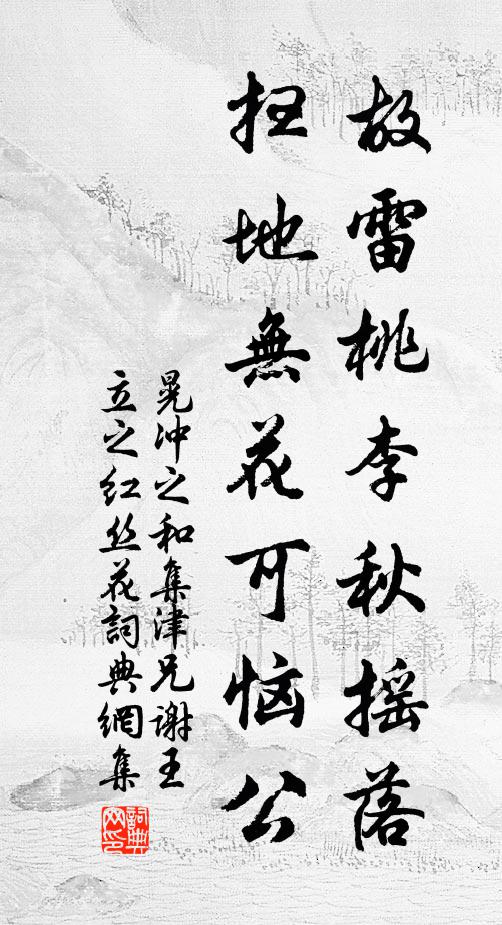 故雷桃李秋摇落
扫地無花可恼公
晃冲之和集津兄謝王
立之红丝花詞典網集
詞典网印